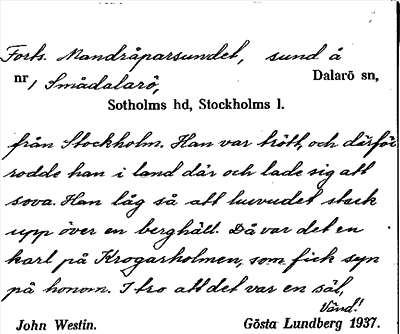 Forts. Mandråparsundet, sund å
nr 1 Smådalarö, Dalarö sn,
Sotholms hd, Stockholms l.
från Stockholm. Han var trött, och därför
rodde han i land där och lade sig att
sova. Han låg så att huvudet stack
upp över en berghäll. Då var det en
karl på Krogarholmen, som fick syn
på honom. I tro att det var en säl,
Vänd!
John Westin. Gösta Lundberg 1937.